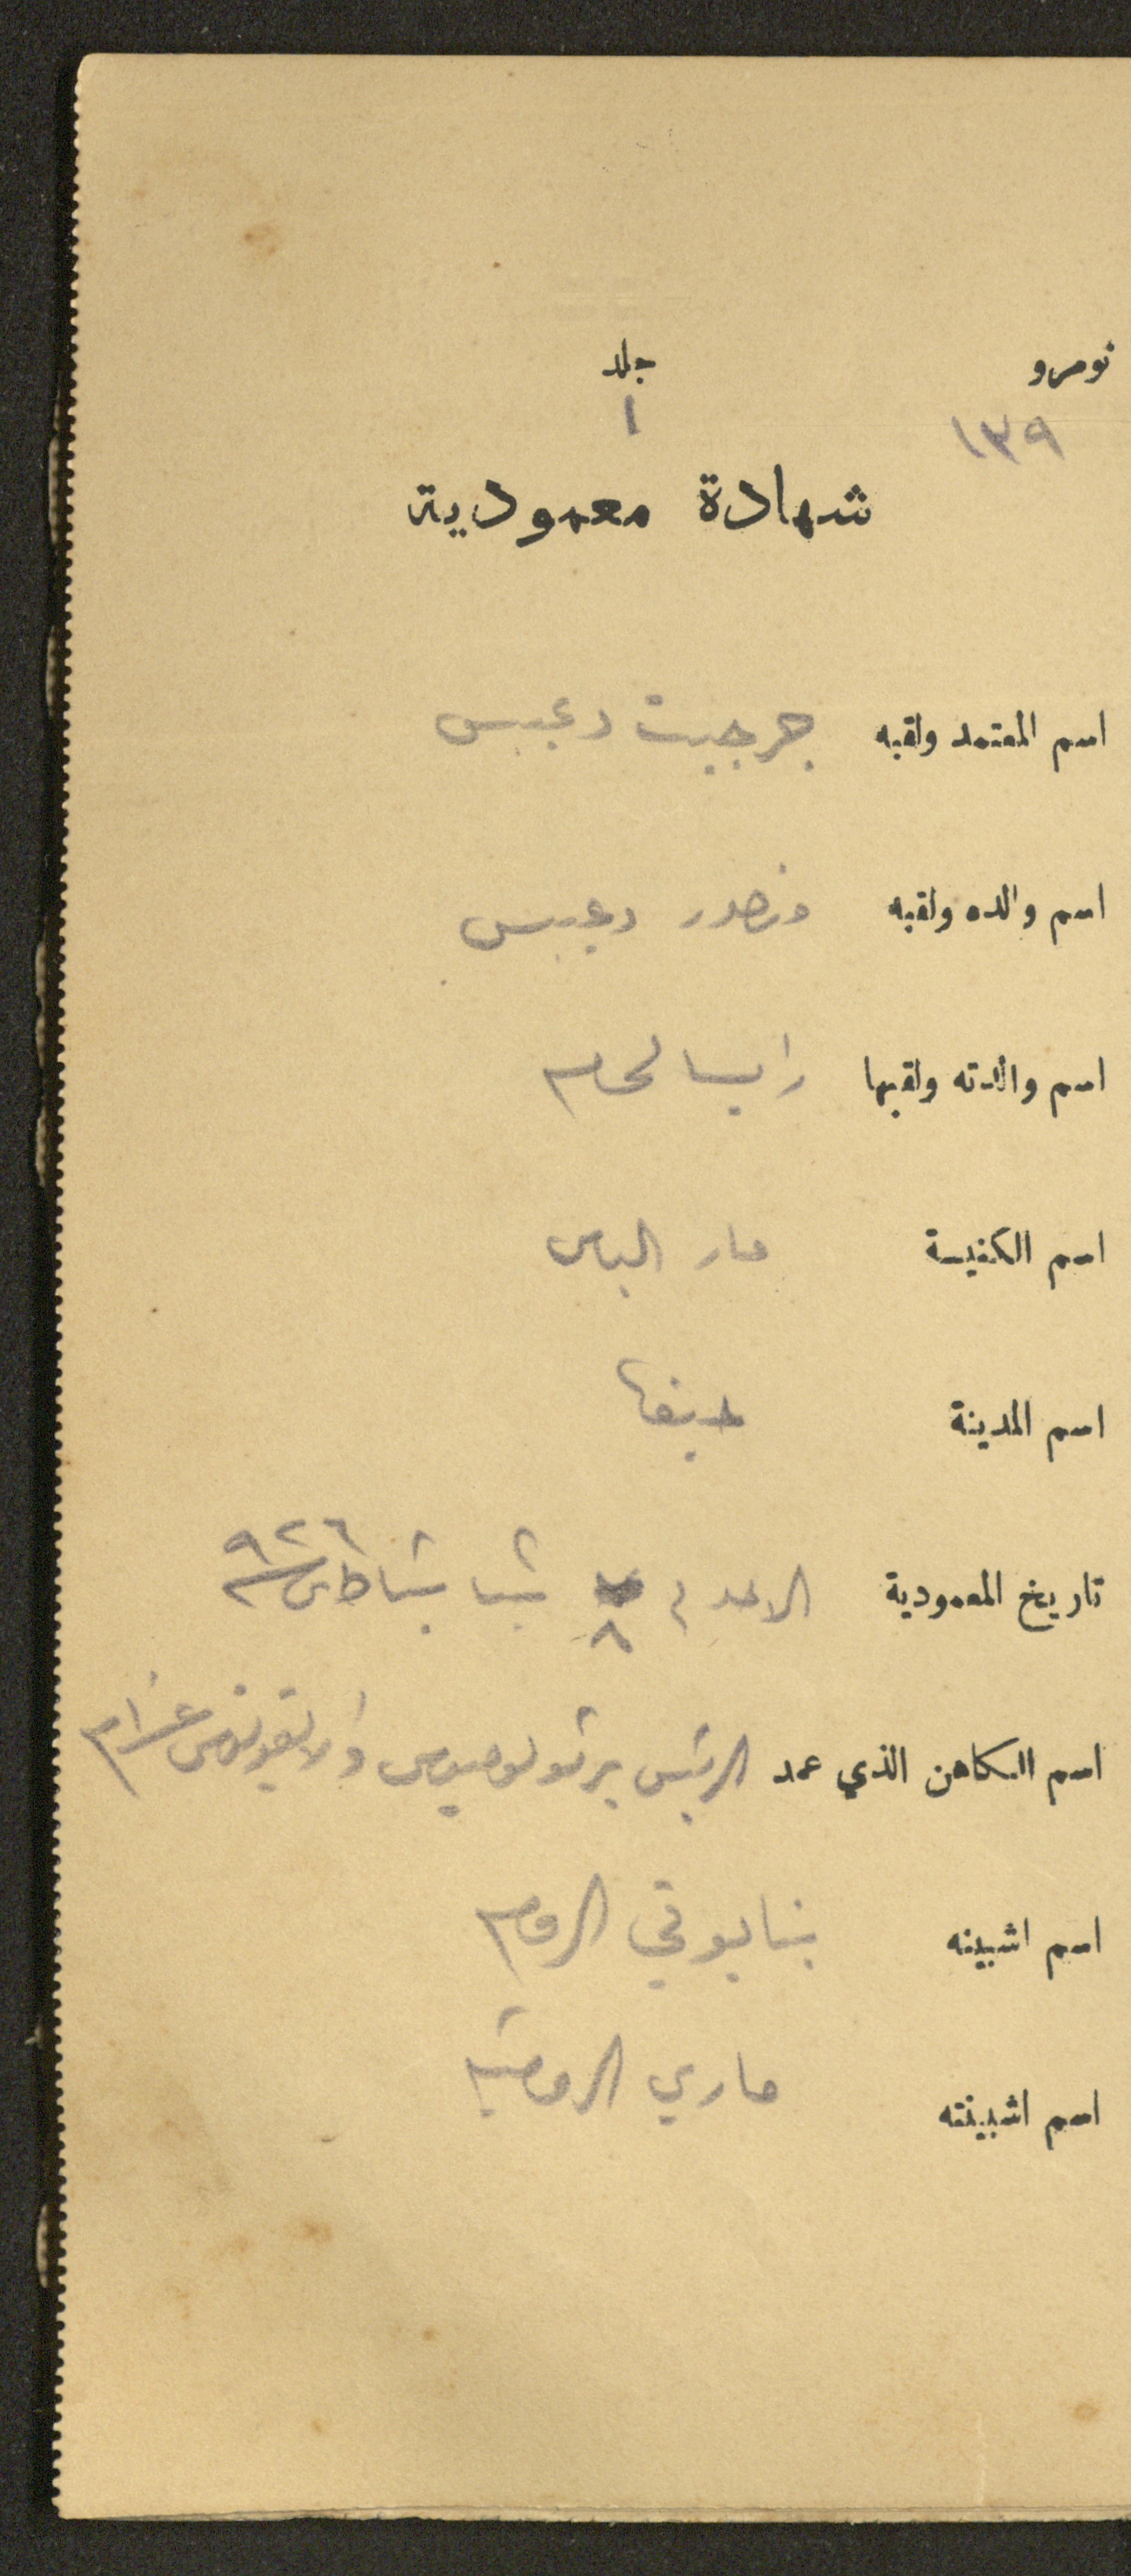 نومرو جلد
١٣٩ ١
شهادة معمودية
اسم المعتمد ولقبه جرجيت دعيبس
اسم والده ولقبه دعيبس
اسم والدته ولقبها
اسم الكنيسة مار الياس
اسم المدينة حيفا
تاريخ المعمودية الاحد في ٨ شباط ٩٢٦
اسم الكاهن الذي عمد الريس برتولوميوس
اسم اشبينه بنايوتي الروم
اسم اشبينته ماري الروميه